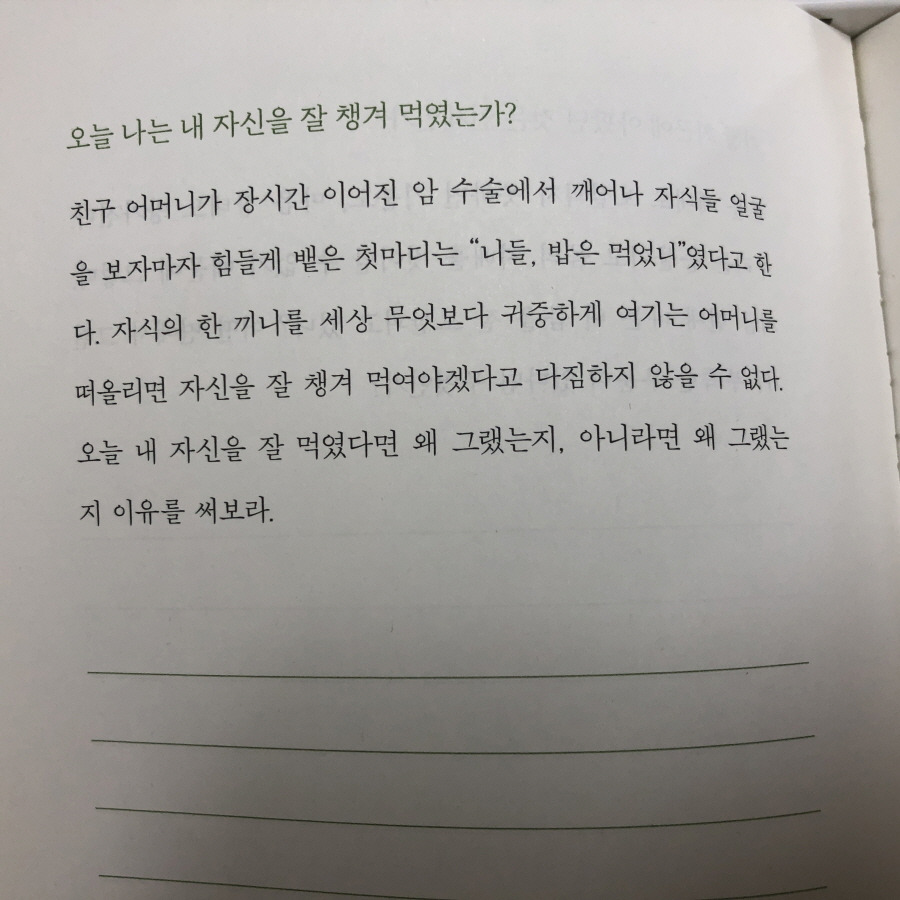 오늘 나는 내 자신을 잘 챙겨 먹였는가?
친구 어머니가 장시간 이어진 암 수술에서 깨어나 자식들 얼굴
을 보자마자 힘들게 뱉은 첫마디는 “니들, 밥은 먹었니”였다고 한
다. 자식의 한 끼니를 세상 무엇보다 귀중하게 여기는 어머니를
떠올리면 자신을 잘 챙겨 먹여야겠다고 다짐하지 않을 수 없다.
오늘 내 자신을 잘 먹였다면 왜 그랬는지, 아니라면 왜 그랬는
지 이유를 써보라.